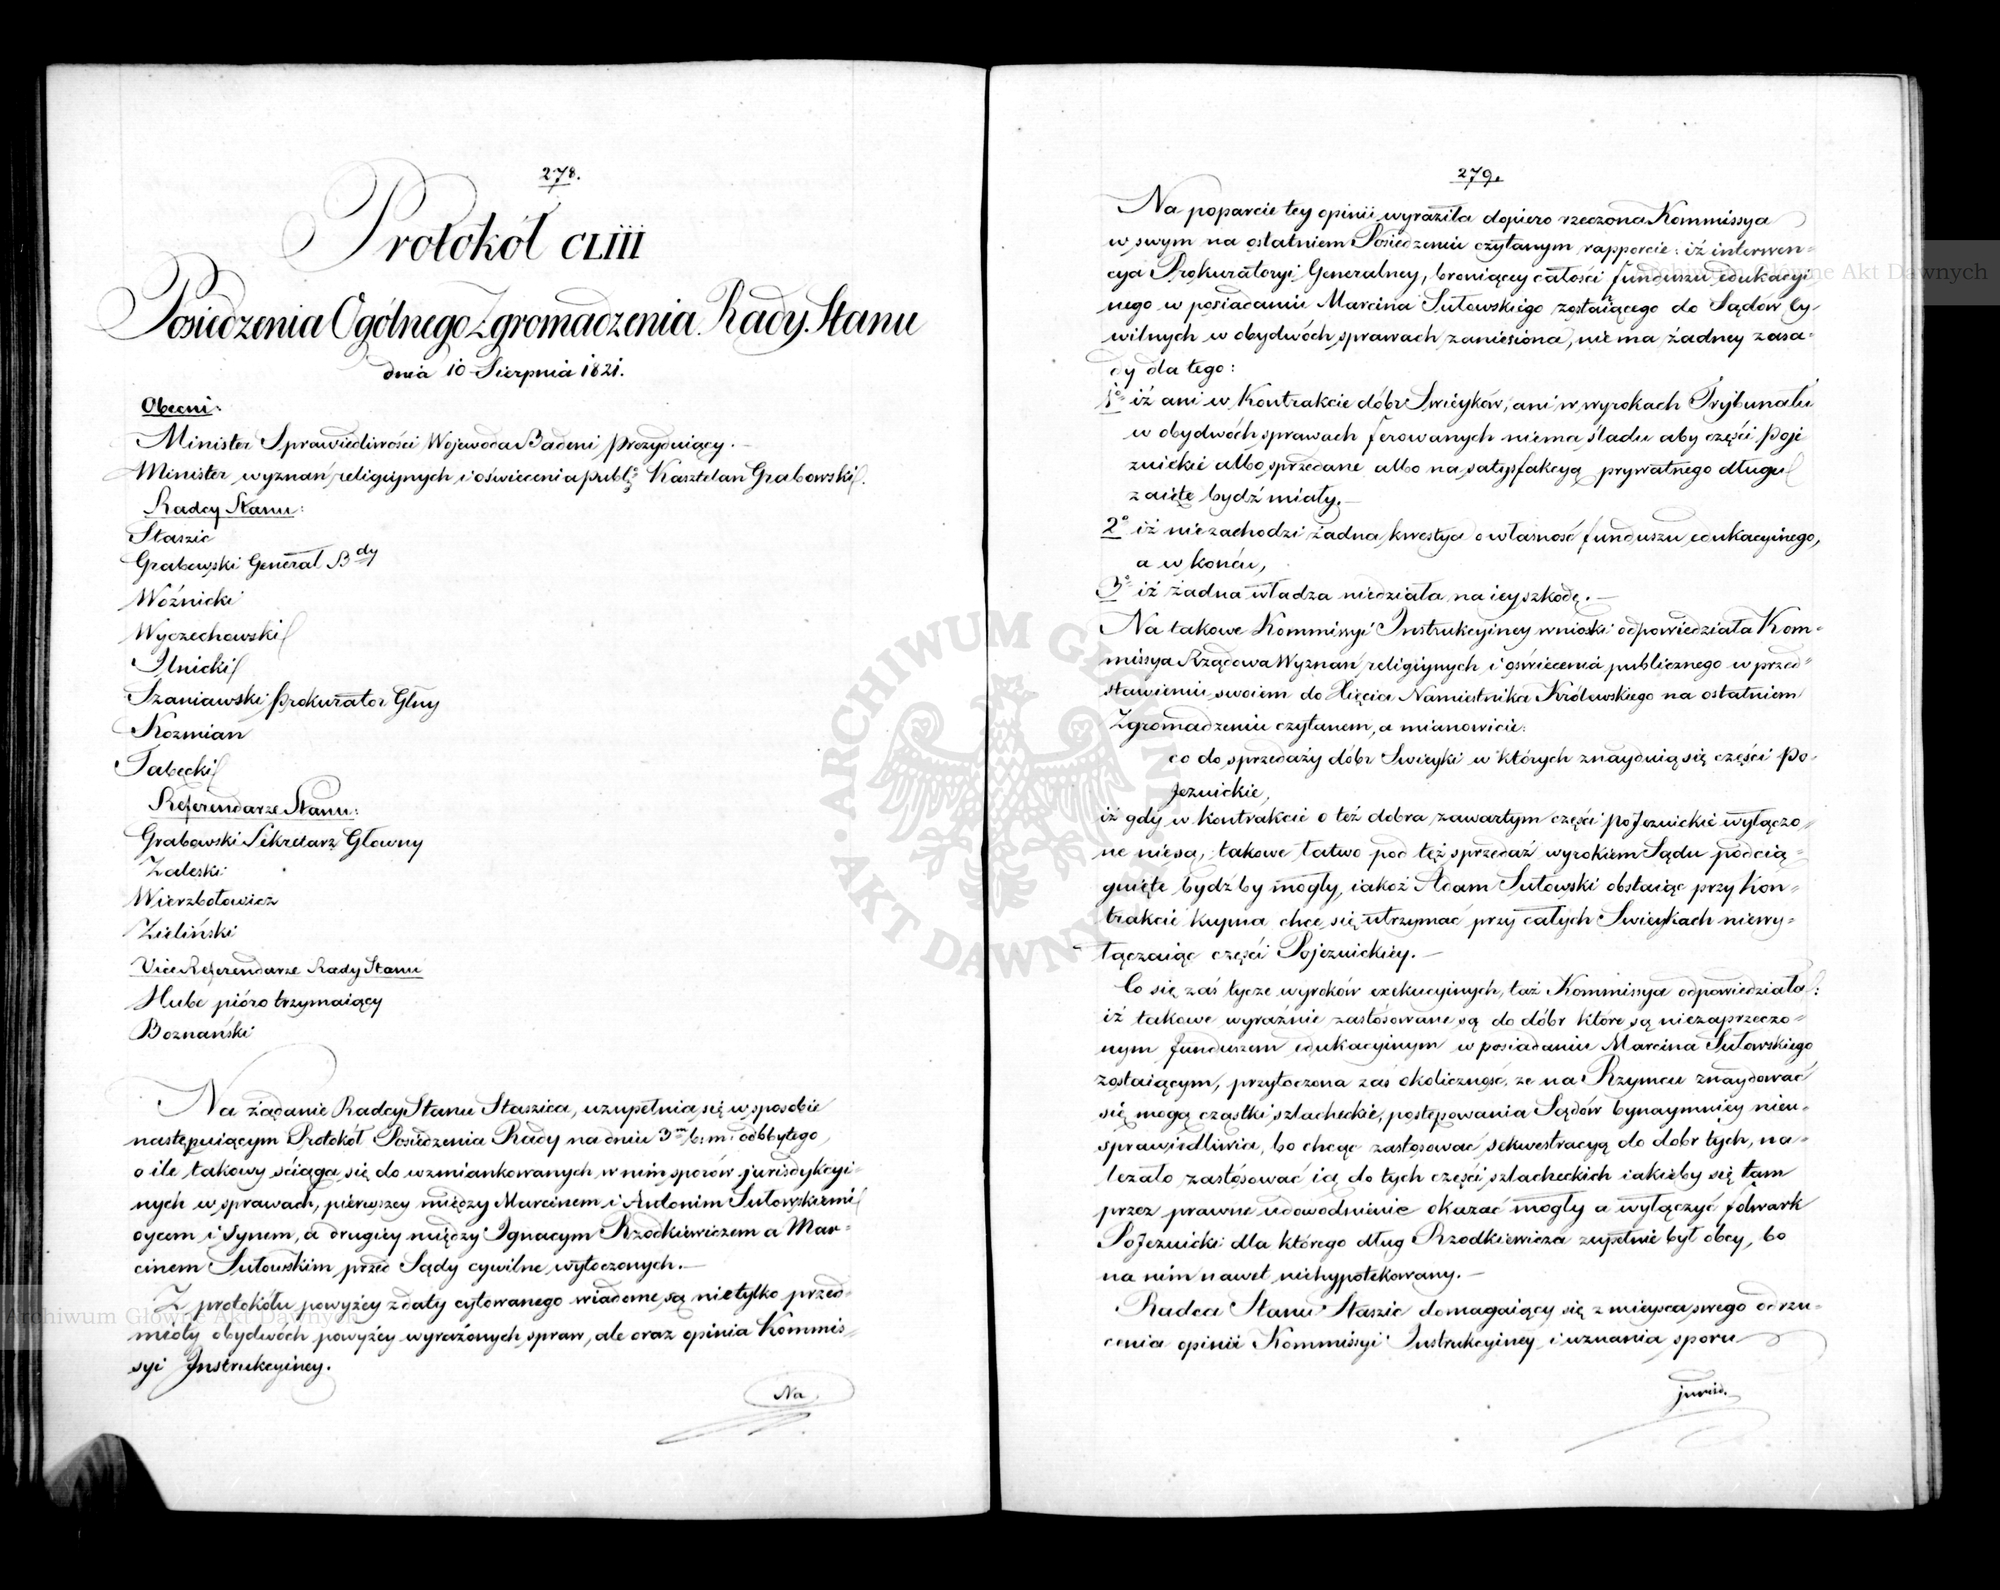 278.
Protokół CLIII
Posiedzenia Ogólnego Zgromadzenia Rady Stanu
dnia 10 Sierpnia 1821.
Obecni:
Minister Sprawiedliwości Wojewoda Badeni prezyduiący.
Minister wyznań religiynych i oświecenia publ: Kasztelan Grabowski.
Radcy Stanu:
Staszic
Grabowski Generał Bdy
Woźnicki
Wyczechowski
Ilnicki
Szaniawski Prokurator Glny
Kozmian
Tabęcki
Referendarze Stanu:
Grabowski Sekretarz Głowny
Zaleski
Wierzbołowicz
Zieliński
Vice Referendarze Rady Stanu
Hube pióro trzymaiący
Boznański
Na żądanie Radcy Stanu Staszica, uzupełnia się w sposobie
następuiącym Protokół Posiedzenia Rady na dniu 3m b: m: odbytego,
o ile takowy ściąga się do wzmiankowanych w nim sporów jurisdykcyi-
nych w sprawach, pierwszey między Marcinem i Antonim Sułowskiemi
oycem i Synem, a drugiey między Ignacym Rzodkiewiczem a Mar-
cinem Sułowskim przed Sądy cywilne wytoczonych.—
Z protokółu powyżey z daty cytowanego wiadome są nietylko przed-
mioty obydwóch powyżey wyrażonych spraw, ale oraz opinia Kommis-
syi Instrukcyiney.
Na
279.
Na poparcie tey opinii wyraziła dopiero rzeczona Kommissya
w swym na ostatniem Posiedzeniu czytanym rapporcie: iż interwen-
cya Prokuratoryi Generalney, broniącey całości funduszu edukacyi-
nego w posiadaniu Marcina Sułowskiego zostaiącego do Sądów Cy-
wilnych w obydwóch sprawach zaniesiona, nie ma żadney zasa-
dy dla tego:
1o iż ani w Kontrakcie dóbr Swieyków, ani w wyrokach Trybunału
w obydwóch sprawach ferowanych niema śladu aby części Poje
zuickie albo sprzedane albo na satysfakcyą prywatnego długu
zaięte bydź miały.—
2o iż niezachodzi żadna kwestya o własność funduszu edukacyinego,
a w końcu,
3o iż żadna władza niedziała na iey szkodę.—
Na takowe Kommissyi Instrukcyiney wnioski odpowiedziała Kom-
missya Rządowa Wyznań religiynych i oświecenia publicznego w przed-
stawieniu swoiem do Xięcia Namiestnika Królewskiego na ostatniem
Zgromadzeniu czytanem, a mianowicie:
co do sprzedaży dóbr Swieyki w których znayduią się części Po-
jezuickie,
iż gdy w kontrakcie o też dobra zawartym części poJezuickie wyłączo-
ne niesą, takowe łatwo pod tęż sprzedaż wyrokiem Sądu podcią-
gnięte bydź by mogły, iakoż Adam Sułowski obstaiąc przy Kon-
trakcie kupna chce się utrzymać przy całych Swieykach niewy-
łączaiąc części Pojezuickiey.—
Co się zaś tycze wyroków exekucyinych, taż Kommissya odpowiedziała:
iż takowe wyraźnie zastosowane są do dóbr które są niezaprzeczo-
nym funduszem edukacyinym w posiadaniu Marcina Sułowskiego
zostaiącym, przytoczona zaś okoliczność, że na Rzymcu znaydować
się mogą cząstki szlacheckie, postępowania Sądów bynaymniey nieu-
sprawiedliwia, bo chcąc zastosować sekwestracyą do dobr tych, na-
leżało zastósować ią do tych części szlacheckich iakieby się tam
przez prawne udowodnienie okazać mogły a wyłączyć folwark
PoJezuicki dla którego dług Rzodkiewicza zupełnie był obcy, bo
na nim nawet niehypotekowany.—
Radca Stanu Staszic domagaiący się z mieysca swego odrzu-
cenia opinii Kommissyi Instrukcyiney i uznania sporu
jurisd.
Archiwum Główne Akt Dawnych
Archiwum Główne Akt Dawnych
ARCHIWUM GŁÓWNE AKT DAWNYCH